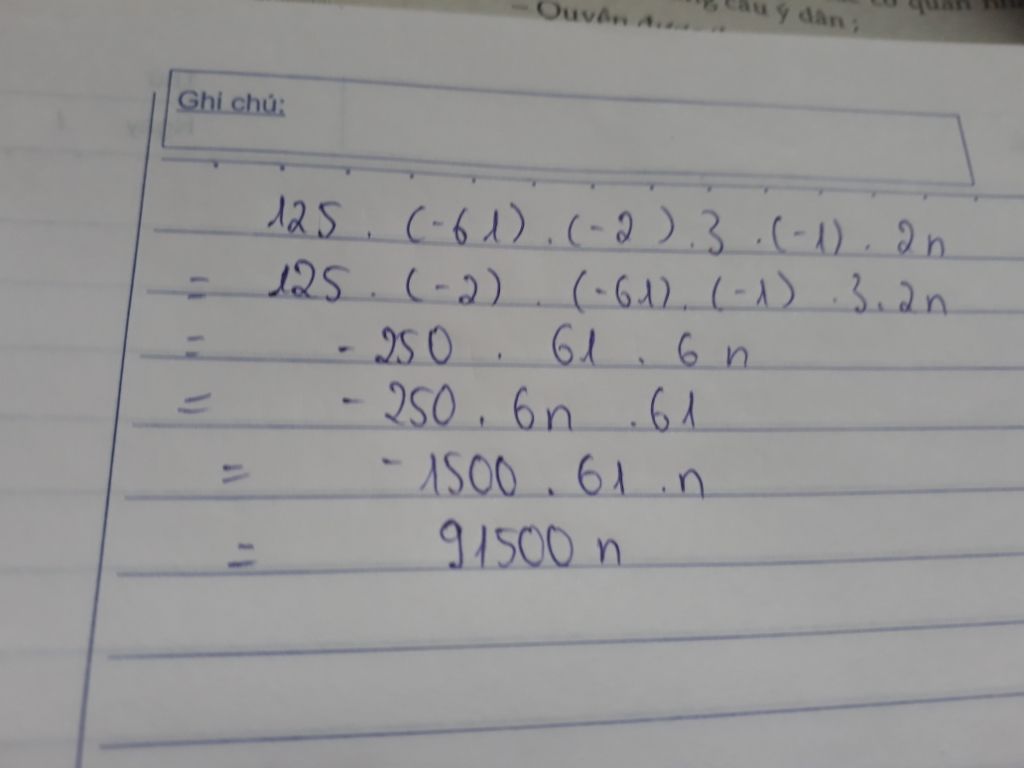 cầu ý dân ;
– Quyền
Ghi chú:
125 . (-61) . (-2) . 3 . (-1) . 2n
= 125 . (-2) . (-61) . (-1) . 3 . 2n
= - 250 . 61 . 6 n
= - 250 . 6n . 61
= - 1500 . 61 . n
= 91500 n